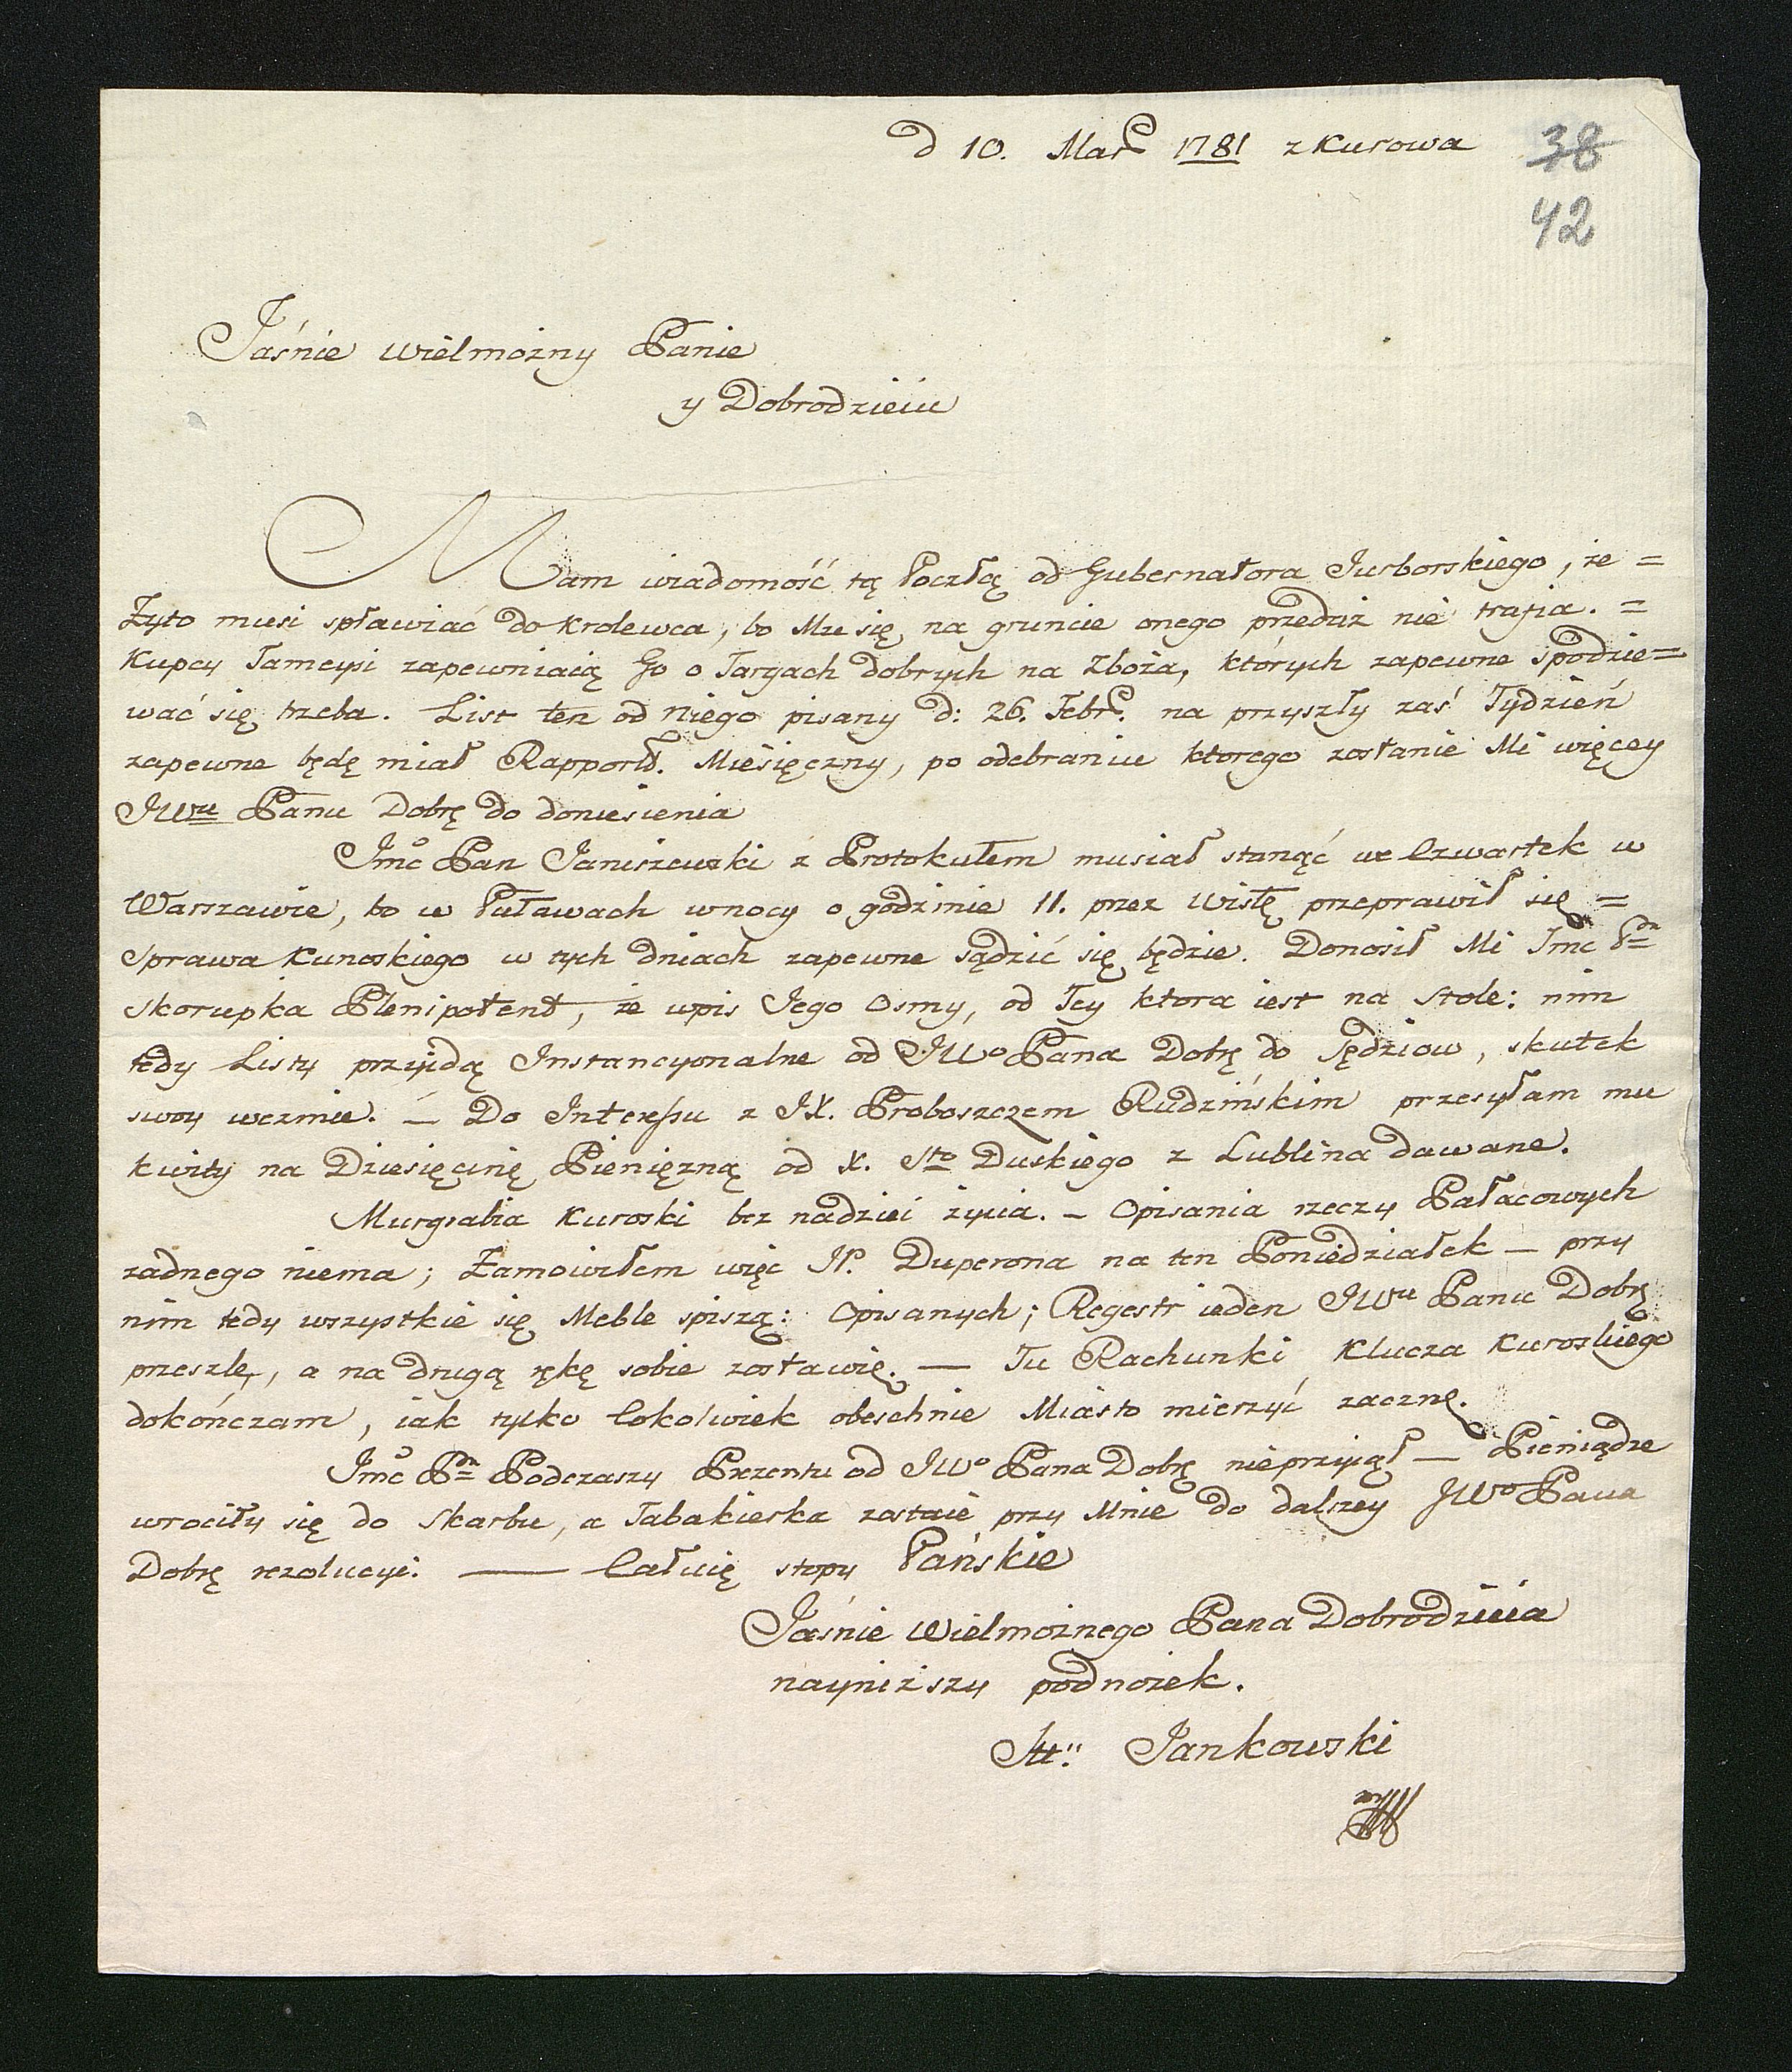 d 10. Mar 1781 z Kurowa
38
42
Jaśnie Wielmożny Panie
y Dobrodzieiu
Mam wiadomość tą Pocztą od Gubernatora Jurborskiego, że =
Zyto musi spławiać do Krolewca, bo Mu się na gruncie onego przedaż nie trafia. =
Kupcy Tameysi zapewniaią Go o Targach dobrych na Zboża, których zapewne spodzie=
wać się trzeba. List ten od Niego pisany d: 26. Febr. na przyszły zaś Tydzień
zapewne będę miał Rapport. Miesięczny, po odebraniu ktorego zostanie Mi więcey
JWu Panu Dobrę do doniesienia
Jmć Pan Janiszewski z Protokułem musiał stanąć we Czwartek w
Warszawie, bo w Puławach wnocy o godzinie 11. przez Wisłę przeprawił się =
Sprawa Kunoskiego w tych dniach zapewne sądzić się będzie. Donosił Mi Jmć Pan
Skorupka Plenipotent, że wpis Jego Osmy, od Tey ktora iest na Stole: nim
tedy Listy przyidą Instancyonalne od JWo Pana Dobrę do Sędziow, skutek
swoy wezmie. — Do Interessu z JX. Proboszczem Rudzińskim przesyłam mu
kwity na Dziesięcinę Pieniężną od X. Sto Duskiego z Lublina dawane.
Murgrabia Kuroski bez nadziei życia. — Opisania rzeczy Pałacowych
żadnego niema; Zamowiłem więc JP. Duperona na ten Poniedziałek — przy
nim tedy wszystkie się Meble spiszą: Opisanych; Regestr ieden JWu Panu Dobrę
przeszlę, a na drugą rękę sobie zostawię. — Tu Rachunki Klucza Kuroskiego
dokończam, iak tylko Cokolwiek obeschnie Miasto mierzyć zacznę.
Jmć Pan Podczaszy Prezentu od JWo Pana Dobrę nieprzyiął — Pieniądze
wrociły się do Skarbu, a Tabakierka zostaie przy Mnie do dalszey JWo Pana
Dobrę rezolucyi. — Całuię stopy Pańskie
Jaśnie Wielmożnego Pana Dobrodzieia
nayniższy podnożek.
Jankowski